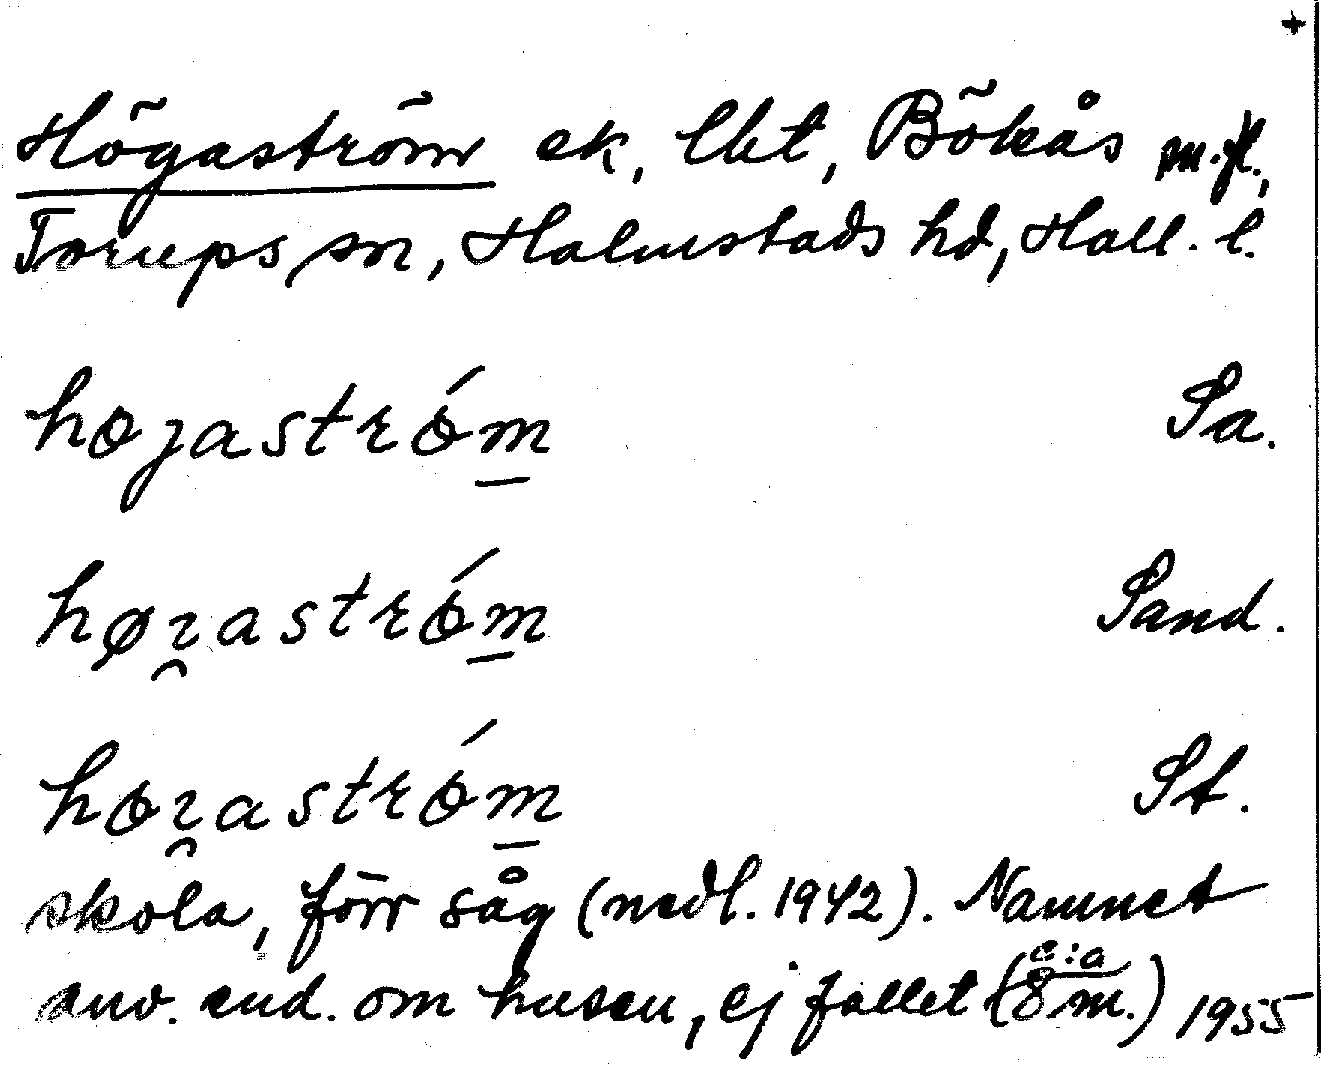 +
Högaström ek, lht, Bökås m.fl.,
Torups sn, Halmstads hd, Hall. l.
hojaström Sa.
høɿaström Sand.
hoɿaström St.
skola, förr såg (nedl. 1942). Namnet
anv. end. om husen, ej fallet (c:a 8 m.) 1955